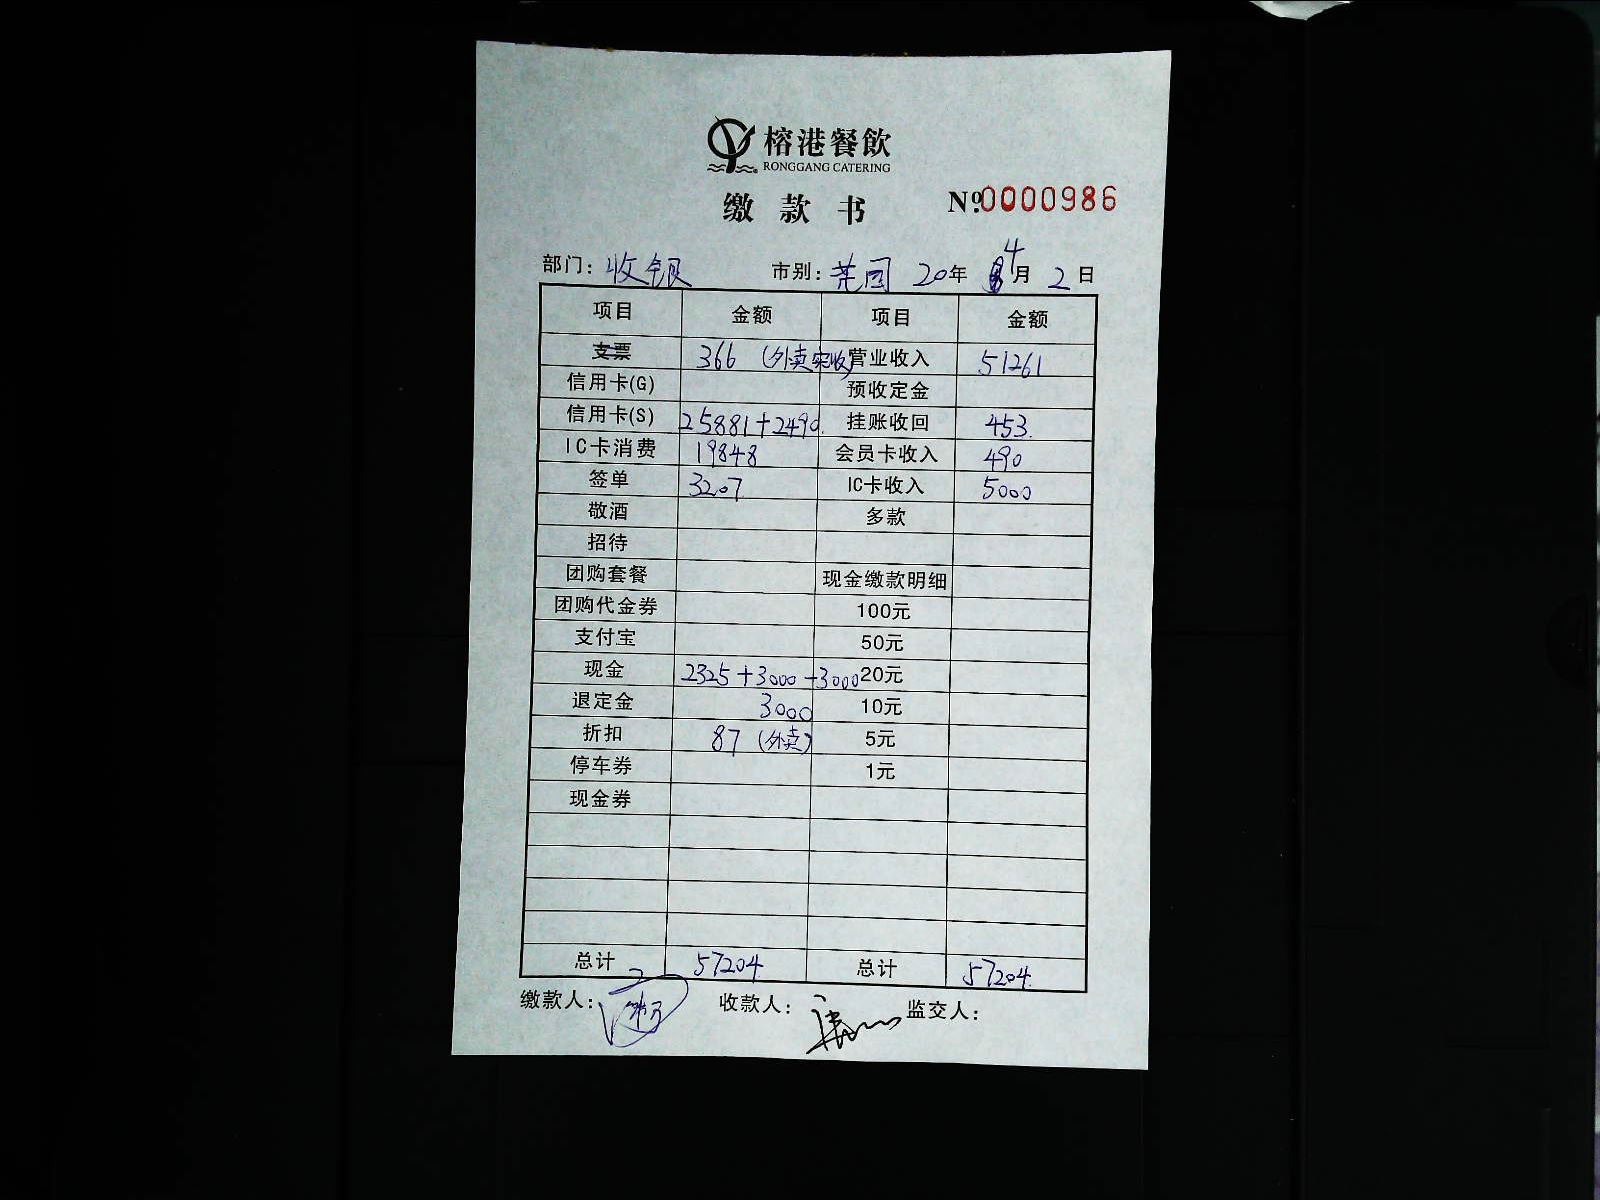 榕港餐飲
RONGGANG CATERING
缴款书
Nº 0000986
部门: 收银 市别: 莞园 20年 4月 2日
项目 金额 项目 金额
支票 366 (外卖实收) 营业收入 51261
信用卡(G) 预收定金
信用卡(S) 25881+2490 挂账收回 453.
IC卡消费 19848 会员卡收入 490
签单 3207 IC卡收入 5000
敬酒 多款
招待
团购套餐 现金缴款明细
团购代金券 100元
支付宝 50元
现金 2325+3000+3000 20元
退定金 3000 10元
折扣 87 (外卖) 5元
停车券 1元
现金券
总计 57204 总计 57204.
缴款人: 收款人: 监交人: